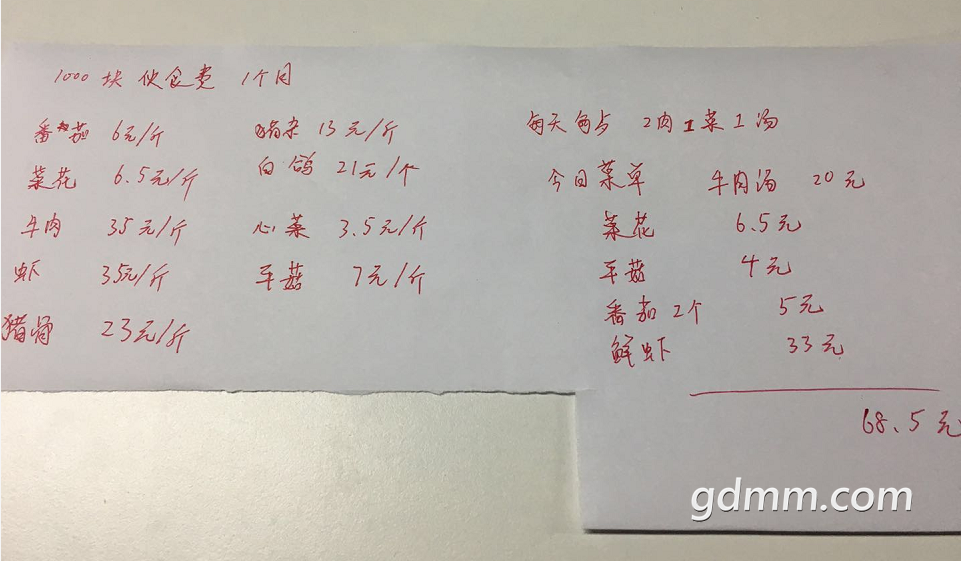 1000块伙食费 1个月
番茄 6元/斤
菜花 6.5元/斤
牛肉 35元/斤
虾 35元/斤
猪骨 23元/斤
杂 13元/斤
白鸽 21元/个
心菜 3.5元/斤
平菇 7元/斤
每天每 2肉1菜1汤
今日菜单 牛肉汤 20元
菜花 6.5元
平菇 4元
番茄2个 5元
鲜虾 33元
68.5元
gdmm.com